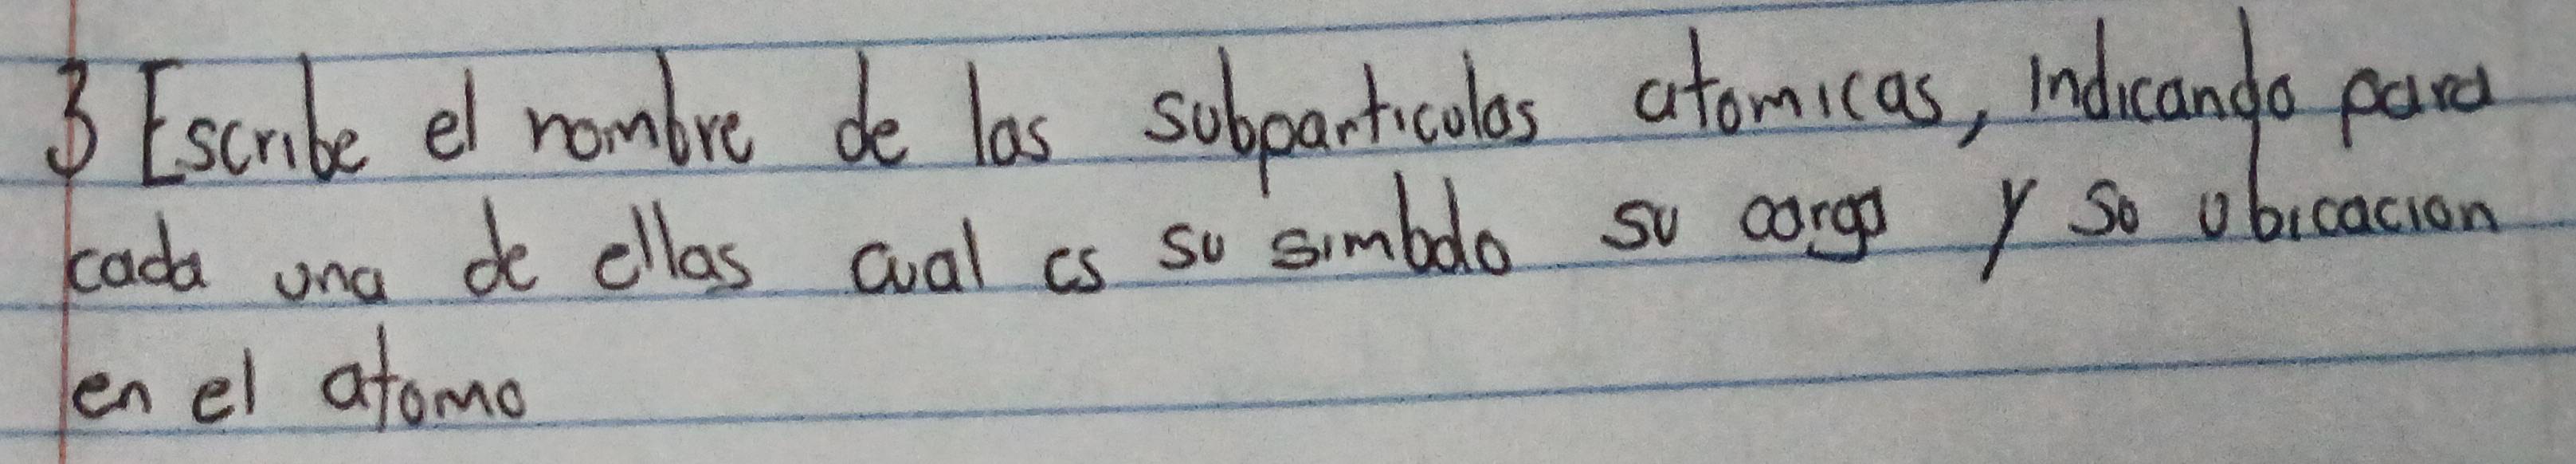 3 Escribe el nombre de las subparticulas atomicas, indicando para
cada una de ellas cual es su simbolo su carga y su ubicacion
en el atomo